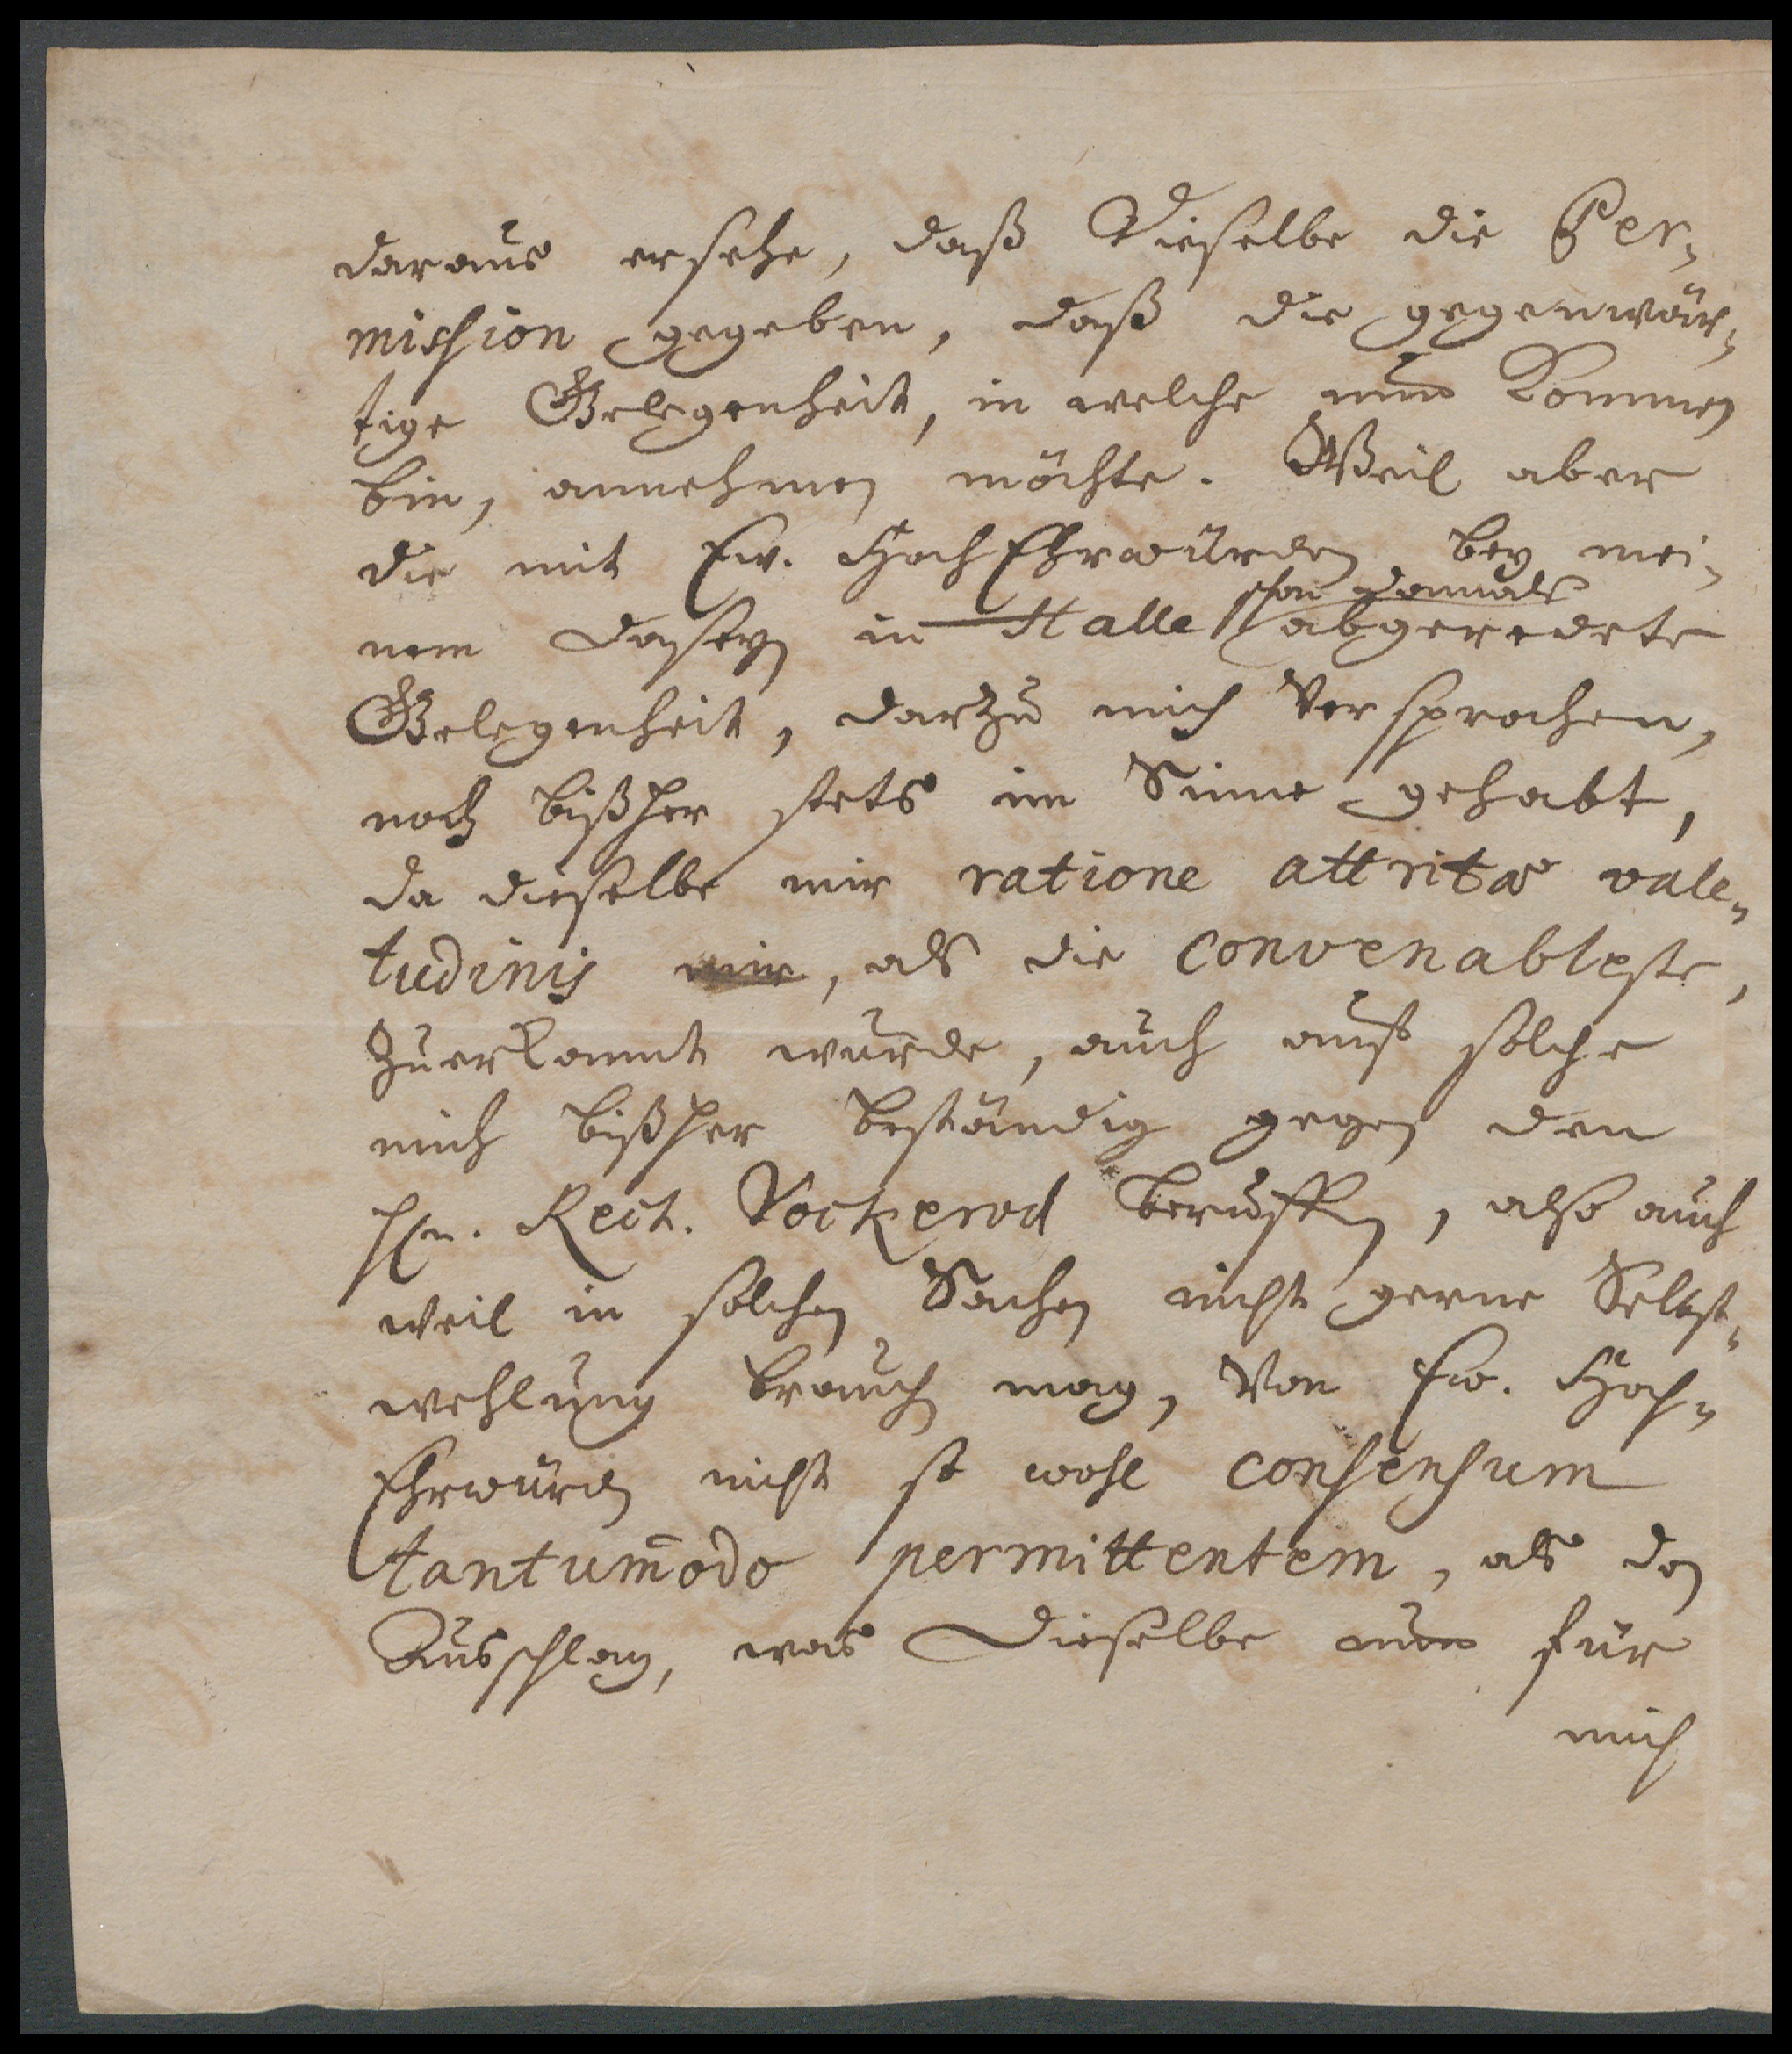 daraus ersehe, daß Dieselbe die Per-
mission gegeben, daß die gegenwär-
tige Gelegenheit, in welche nun kommen
bin, annehmen möchte. Weil aber
die mit Ew. HochEhrwürden bey mei-
schon damals
nem daseyn in Halle abgeredete
Gelegenheit, darzu mich versprochen,
noch bißher stets im Sinne gehabt,
da dieselbe mir ratione attritæ vale-
tudinis mir, als die convenableste,
zuerkannt wurde, auch auf solche
mich bißher beständig gegen den
Hn. Rect. Vockerod beruffen, also auch
weil in solchen Sachen nicht gerne Selbst-
wehlung brauchen mag, von Ew. Hoch-
Ehrwürden nicht so wohl consensum
tantum̄odo permittentem, als den
Ausschlag, was Dieselbe nun für
mich